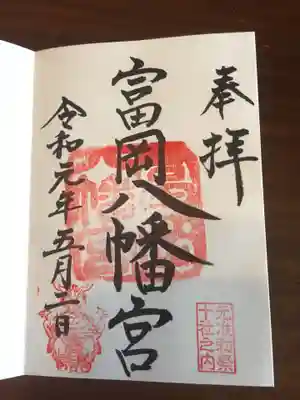 奉拝
元准勅祭
十社之内
富岡八幡宮
令和元年五月二日